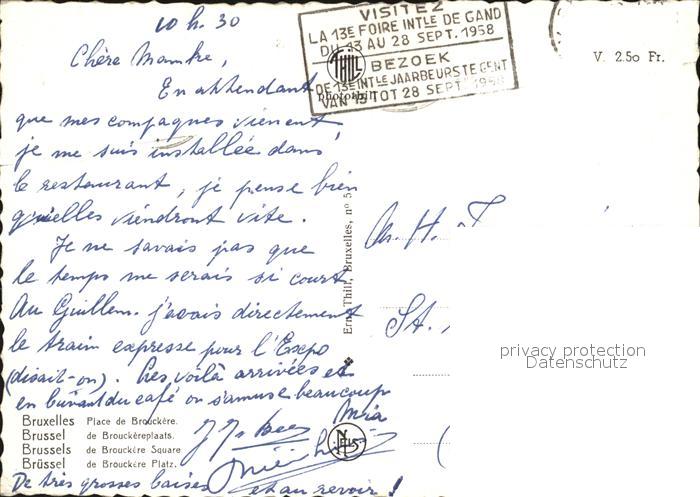 10 h. 30
Chère Mamke,
En attendant
que mes compagnes viennent
je me suis installée dans
le restaurant, je pense bien
qu'elles viendront vite.
Je ne savais pas que
le temps me serais si court
Au Guillem. j'avais directement
le train expresse pour l'Expo
(disait-on). Les voilà arrivées et
en buvant du café on s'amuse beaucoup
Mia
De très grosses baises
et au revoir !
VISITEZ
LA 13E FOIRE INTLE DE GAND
DU 13 AU 28 SEPT. 1958
BEZOEK
DE 13E INTLE JAARBEURS TE GENT
VAN 13 TOT 28 SEPT 1958
THILL
V. 2.50 Fr.
Ern. Thill, Bruxelles, n° 5
M. H. T
St.
privacy protection
Datenschutz
Bruxelles Place de Brouckère.
Brussel de Brouckèreplaats.
Brussels de Brouckère Square
Brüssel de Brouckère Platz.
NELS